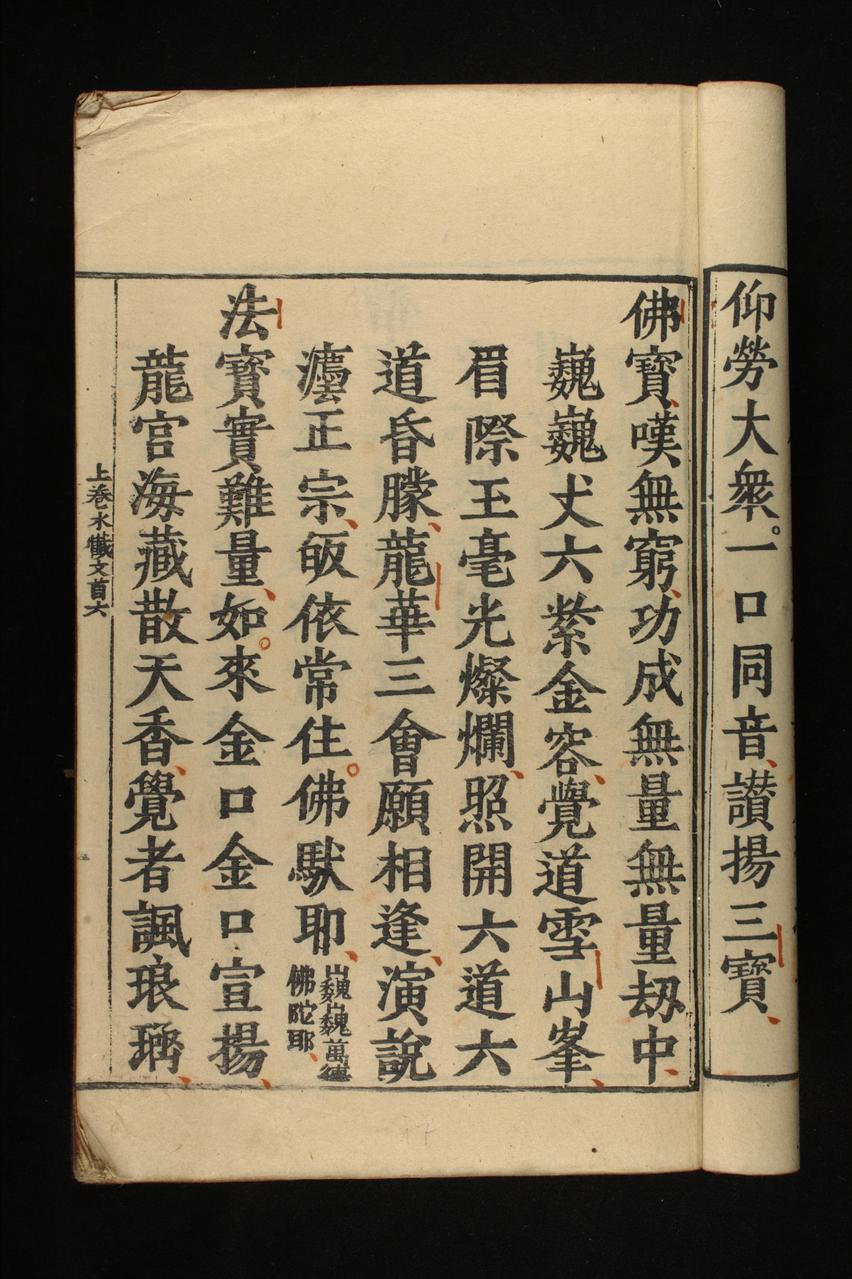 仰勞大衆。一口同音、讃揚三寶、
佛寶、嘆無窮、功成無量無量刼中、
巍巍丈六紫金容、覺道雪山峯、
眉際玉毫光燦爛、照開六道六
道昏朦、龍華三會願相逢、演說
正宗、皈依常住。佛馱耶、
巍巍萬德
佛陀耶、
法寶實難量、如。來金口金口宣揚、
龍宮海藏散天香、覺者諷琅璚、
上卷水懺文首六